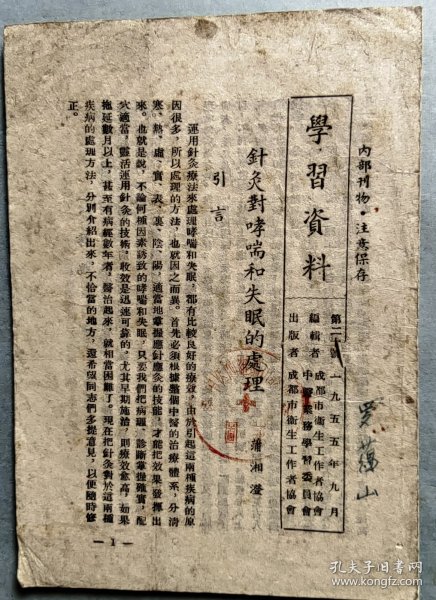 內部刊物·注意保存
學習資料
第二號 一九五五年九月
編輯者 成都市衛生工作者協會
中醫業務學習委員會
出版者 成都市衛生工作者協會
羅
山
針灸對哮喘和失眠的處理
蒲湘澄
引言
運用針灸療法來處理哮喘和失眠，都有比較良好的療效，由於引起這兩種疾病的原
因很多，所以處理的方法，也就因之而異。首先必須根據整個中醫的治療體系，分清
寒、熱、虛、實、表、裏、陰、陽，適當地掌握應針應灸的技能，才能把效果發揮出
來。也就是說，不論何種因素誘致的哮喘和失眠，只要我們把病理、診斷掌握確實，配
穴適當，靈活運用針灸的技術，收效是迅速可靠的。尤其早期施治，則療效愈高，如果
拖延數月以上，甚至有病經數年者，醫治起來，就相當困難了。現在把針灸對於這兩種
疾病的處理方法，分別介紹出來，不恰當的地方，還希望同志們多提意見，以便隨時修
正。
—1—
孔夫子旧书网
www.kongfz.com